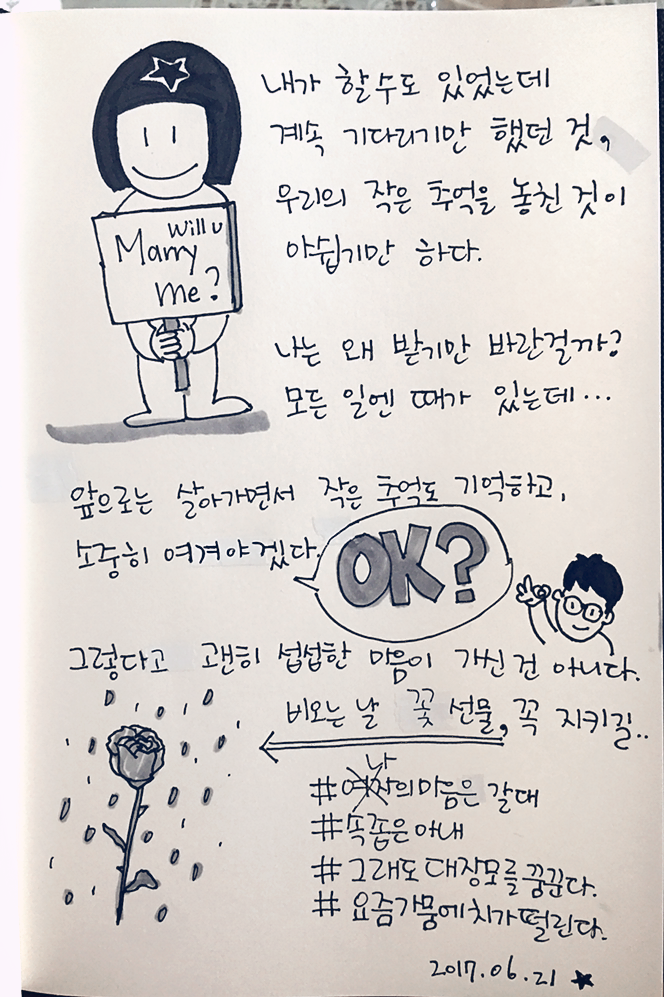 Will u
Marry
me?
내가 할수도 있었는데
계속 기다리기만 했던 것,
우리의 작은 추억을 놓친 것이
아쉽기만 하다.
나는 왜 받기만 바란걸까?
모든 일엔 때가 있는데...
앞으로는 살아가면서 작은 추억도 기억하고,
소중히 여겨야겠다.
OK?
그렇다고 괜히 섭섭한 마음이 가신 건 아니다.
비오는 날 꽃 선물, 꼭 지키길..
나
#여자의 마음은 갈대
#속좁은아내
#그래도 대장모를 꿈꾼다.
#요즘가뭄에치가떨린다.
2017.06.21